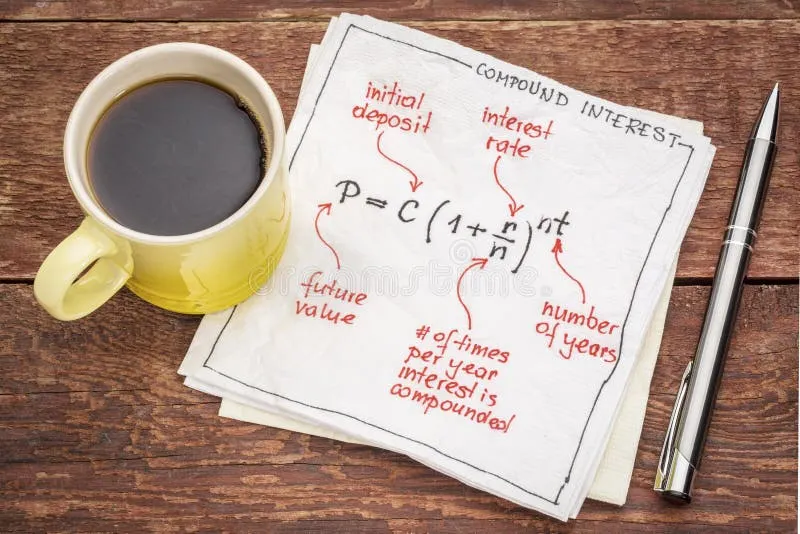 COMPOUND INTEREST
initial
deposit
interest
rate
P = C (1 + r/n)^nt
future
value
# of times
per year
interest is
compounded
number
of years
dreamstime